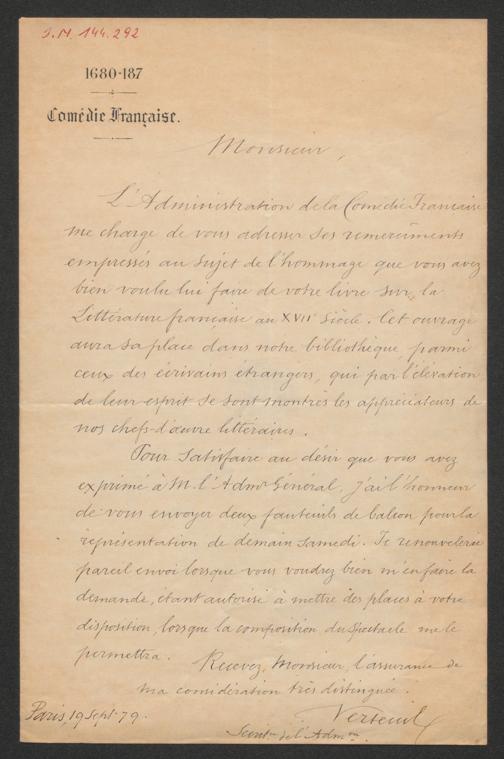 J.N. 144.292
1680-187
Comédie Française.
Monsieur,
L'Administration de la Comédie Française
me charge de vous adresser ses remerciments
empressés au sujet de l'hommage que vous avez
bien voulu lui faire de votre livre sur la
Littérature française au XVIIe Siècle. Cet ouvrage
aura sa place dans notre bibliothèque, parmi
ceux des écrivains étrangers, qui par l'élévation
de leur esprit se sont montrés les appréciateurs de
nos chefs-d'œuvre littéraires.
Pour satisfaire au désir que vous avez
exprimé à M. l'Admr Général, j'ai l'honneur
de vous envoyer deux fauteuils de balcon pour la
représentation de demain Samedi. Je renouvelerai
pareil envoi lorsque vous voudrez bien m'en faire la
demande, étant autorisé à mettre des places à votre
disposition, lorsque la composition du Spectacle me le
permettra. Recevez, Monsieur, l'assurance de
ma considération très distinguée.
Paris, 19 Sept. 79. Verteuil
de l'Admon